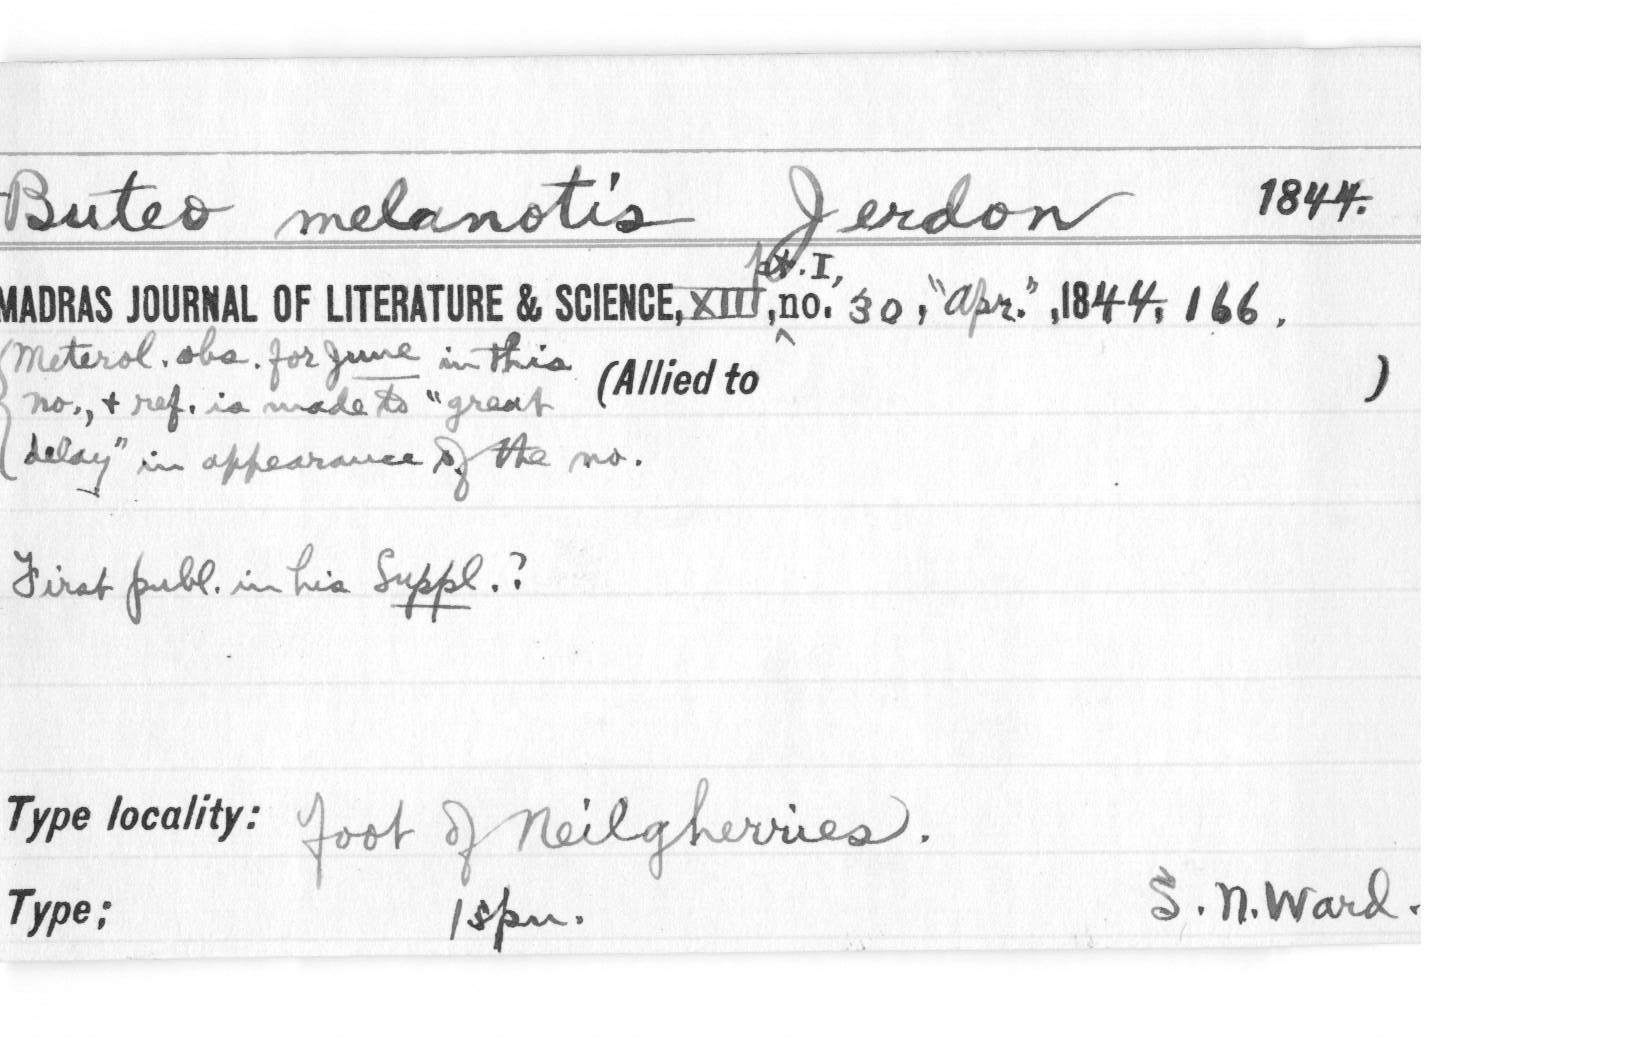 Buteo melanotis Jerdon 1844.
pt. I,
MADRAS JOURNAL OF LITERATURE & SCIENCE, XIII, no. 30, "Apr.", 1844, 166.
Meterol. obs. for June in this
no., + ref. is made to "great
delay" in appearance of the no.
(Allied to )
First publ. in his Suppl.?
Type locality: foot of Neilgherries.
Type; 1 spn. S. N. Ward.